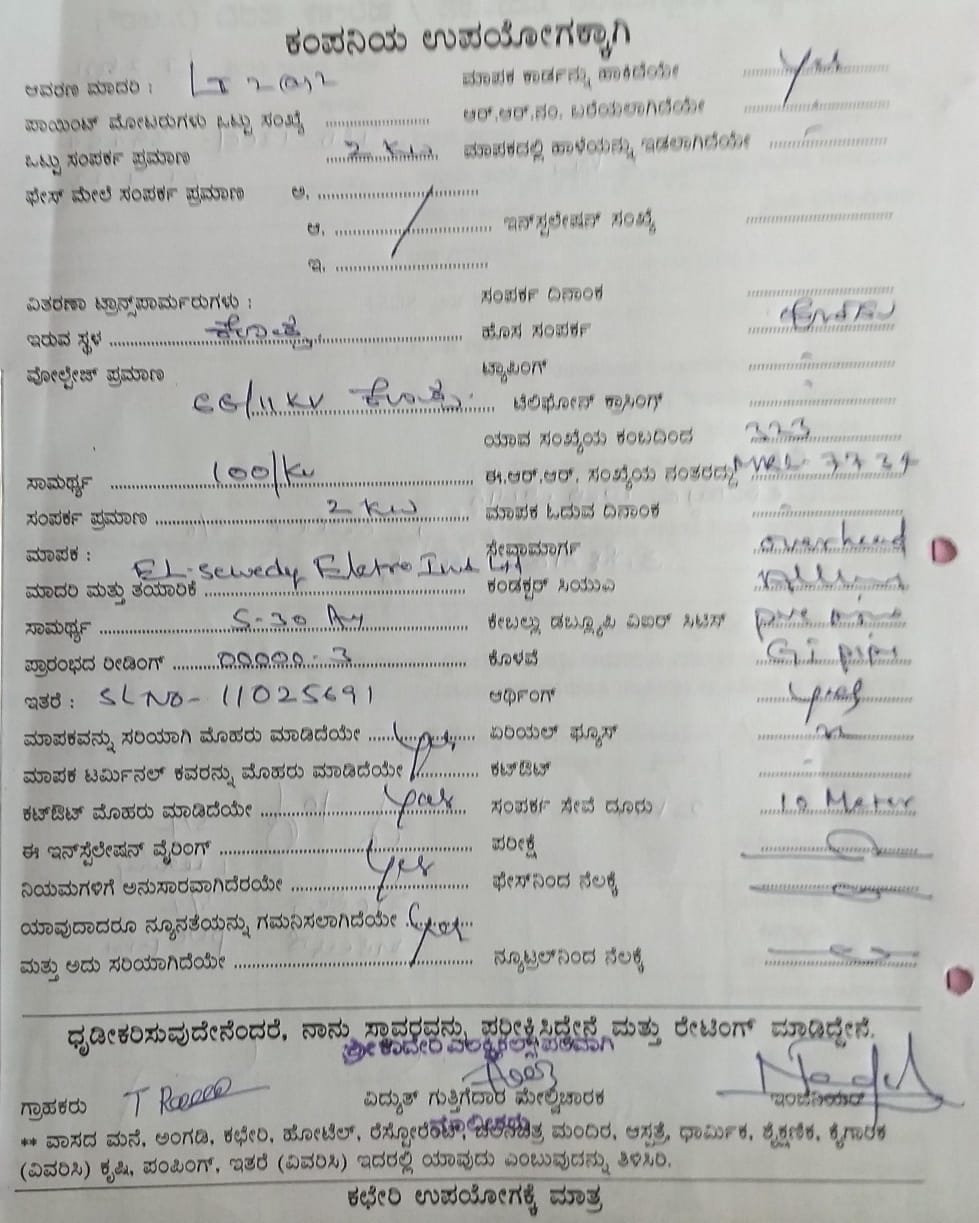 ಕಂಪನಿಯ ಉಪಯೋಗಕ್ಕಾಗಿ
ಆವರಣ ಮಾದರಿ : LT 2(a)2 ಮಾಪಕ ಕಾರ್ಡನ್ನು ಹಾಕಿದೆಯೇ Yes
ಪಾಯಿಂಟ್ ಮೋಟರುಗಳು ಒಟ್ಟು ಸಂಖ್ಯೆ ಆರ್.ಆರ್.ನಂ. ಬರೆಯಲಾಗಿದೆಯೇ
ಒಟ್ಟು ಸಂಪರ್ಕ ಪ್ರಮಾಣ 2 KW ಮಾಪಕದಲ್ಲಿ ಹಾಳೆಯನ್ನು ಇಡಲಾಗಿದೆಯೇ
ಫೇಸ್ ಮೇಲೆ ಸಂಪರ್ಕ ಪ್ರಮಾಣ ಅ.
ಆ. ಇನ್‌ಸ್ಟಲೇಷನ್ ಸಂಖ್ಯೆ
ಇ.
ವಿತರಣಾ ಟ್ರಾನ್ಸ್‌ಪಾರ್ಮರುಗಳು : ಸಂಪರ್ಕ ದಿನಾಂಕ
ಇರುವ ಸ್ಥಳ ಹೊಸ ಸಂಪರ್ಕ
ವೋಲ್ಟೇಜ್ ಪ್ರಮಾಣ ಟ್ಯಾಪಿಂಗ್
66/11 KV ಟೆಲಿಫೋನ್ ಕ್ರಾಸಿಂಗ್
ಯಾವ ಸಂಖ್ಯೆಯ ಕಂಬದಿಂದ 323
ಸಾಮರ್ಥ್ಯ 100/Kv ಈ.ಆರ್.ಆರ್. ಸಂಖ್ಯೆಯ ನಂತರದ್ದು
ಸಂಪರ್ಕ ಪ್ರಮಾಣ 2 KW ಮಾಪಕ ಓದುವ ದಿನಾಂಕ
ಮಾಪಕ : ಸೇವಾಮಾರ್ಗ overhead
EL-sewedy Eletro Ind Ltd
ಮಾದರಿ ಮತ್ತು ತಯಾರಿಕೆ ಕಂಡಕ್ಟರ್ ಸಿಯುಎ
ಸಾಮರ್ಥ್ಯ 5-30 ಕೇಬಲ್ಲು ಡಬ್ಲ್ಯೂಪಿ ವಿಐಆರ್ ಸಿಟಿಸ್ pvc
ಪ್ರಾರಂಭದ ರೀಡಿಂಗ್ 00000-3 ಕೊಳವೆ GI pipe
ಇತರೆ : SL NO- 11025691 ಆರ್ಥಿಂಗ್
ಮಾಪಕವನ್ನು ಸರಿಯಾಗಿ ಮೊಹರು ಮಾಡಿದೆಯೇ Yes ಏರಿಯಲ್ ಫ್ಯೂಸ್
ಮಾಪಕ ಟರ್ಮಿನಲ್ ಕವರನ್ನು ಮೊಹರು ಮಾಡಿದೆಯೇ ಕಟ್‌ಔಟ್
ಕಟ್‌ಔಟ್ ಮೊಹರು ಮಾಡಿದೆಯೇ Yes ಸಂಪರ್ಕ ಸೇವೆ ದೂರು 10 Meter
ಈ ಇನ್‌ಸ್ಟೆಲೇಷನ್ ವೈರಿಂಗ್ ಪರೀಕ್ಷೆ
ನಿಯಮಗಳಿಗೆ ಅನುಸಾರವಾಗಿದೆರಯೇ Yes ಫೇಸ್‌ನಿಂದ ನೆಲಕ್ಕೆ
ಯಾವುದಾದರೂ ನ್ಯೂನತೆಯನ್ನು ಗಮನಿಸಲಾಗಿದೆಯೇ Yes
ಮತ್ತು ಅದು ಸರಿಯಾಗಿದೆಯೇ ನ್ಯೂಟ್ರಲ್‌ನಿಂದ ನೆಲಕ್ಕೆ
ಧೃಡೀಕರಿಸುವುದೇನೆಂದರೆ, ನಾನು ಸ್ಥಾವರವನ್ನು ಪರೀಕ್ಷಿಸಿದ್ದೇನೆ ಮತ್ತು ರೇಟಿಂಗ್ ಮಾಡಿದ್ದೇನೆ.
ಶ್ರೀ ಕಾವೇರಿ ಎಲೆಕ್ಟ್ರಿಕಲ್ಸ್ ಪರವಾಗಿ
ಗ್ರಾಹಕರು ವಿದ್ಯುತ್ ಗುತ್ತಿಗೆದಾರ ಮೇಲ್ವಿಚಾರಕ ಇಂಜಿನಿಯರ್
ಮಾಲೀಕರು
** ವಾಸದ ಮನೆ, ಅಂಗಡಿ, ಕಛೇರಿ, ಹೋಟೆಲ್, ರೆಸ್ಟೋರೆಂಟ್, ಚಲನಚಿತ್ರ ಮಂದಿರ, ಆಸ್ಪತ್ರೆ, ಧಾರ್ಮಿಕ, ಶೈಕ್ಷಣಿಕ, ಕೈಗಾರಿಕ
(ವಿವರಿಸಿ) ಕೃಷಿ, ಪಂಪಿಂಗ್, ಇತರೆ (ವಿವರಿಸಿ) ಇದರಲ್ಲಿ ಯಾವುದು ಎಂಬುವುದನ್ನು ತಿಳಿಸಿರಿ.
ಕಛೇರಿ ಉಪಯೋಗಕ್ಕೆ ಮಾತ್ರ